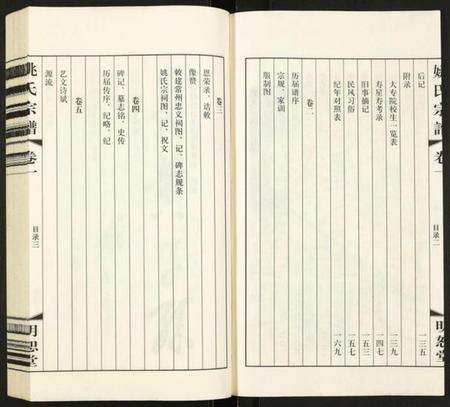 姚氏宗谱 卷一 目录二 明恕堂
后记 一三五
附录
大专院校生一览表 一三九
寿星寿考录 一四七
旧事摘记 一五三
民风习俗 一五七
纪年对照表 一六九
卷二
历届谱序
宗规、家训
服制图
卷三
恩荣录、诰敕
像赞
敕建常州忠义祠图、记、碑志规条
姚氏宗祠图、记、祝文
卷四
碑记、墓志铭、史传
历届传序、纪略、纪
卷五
艺文诗斌
源流
姚氏宗谱 卷一 目录三 明恕堂